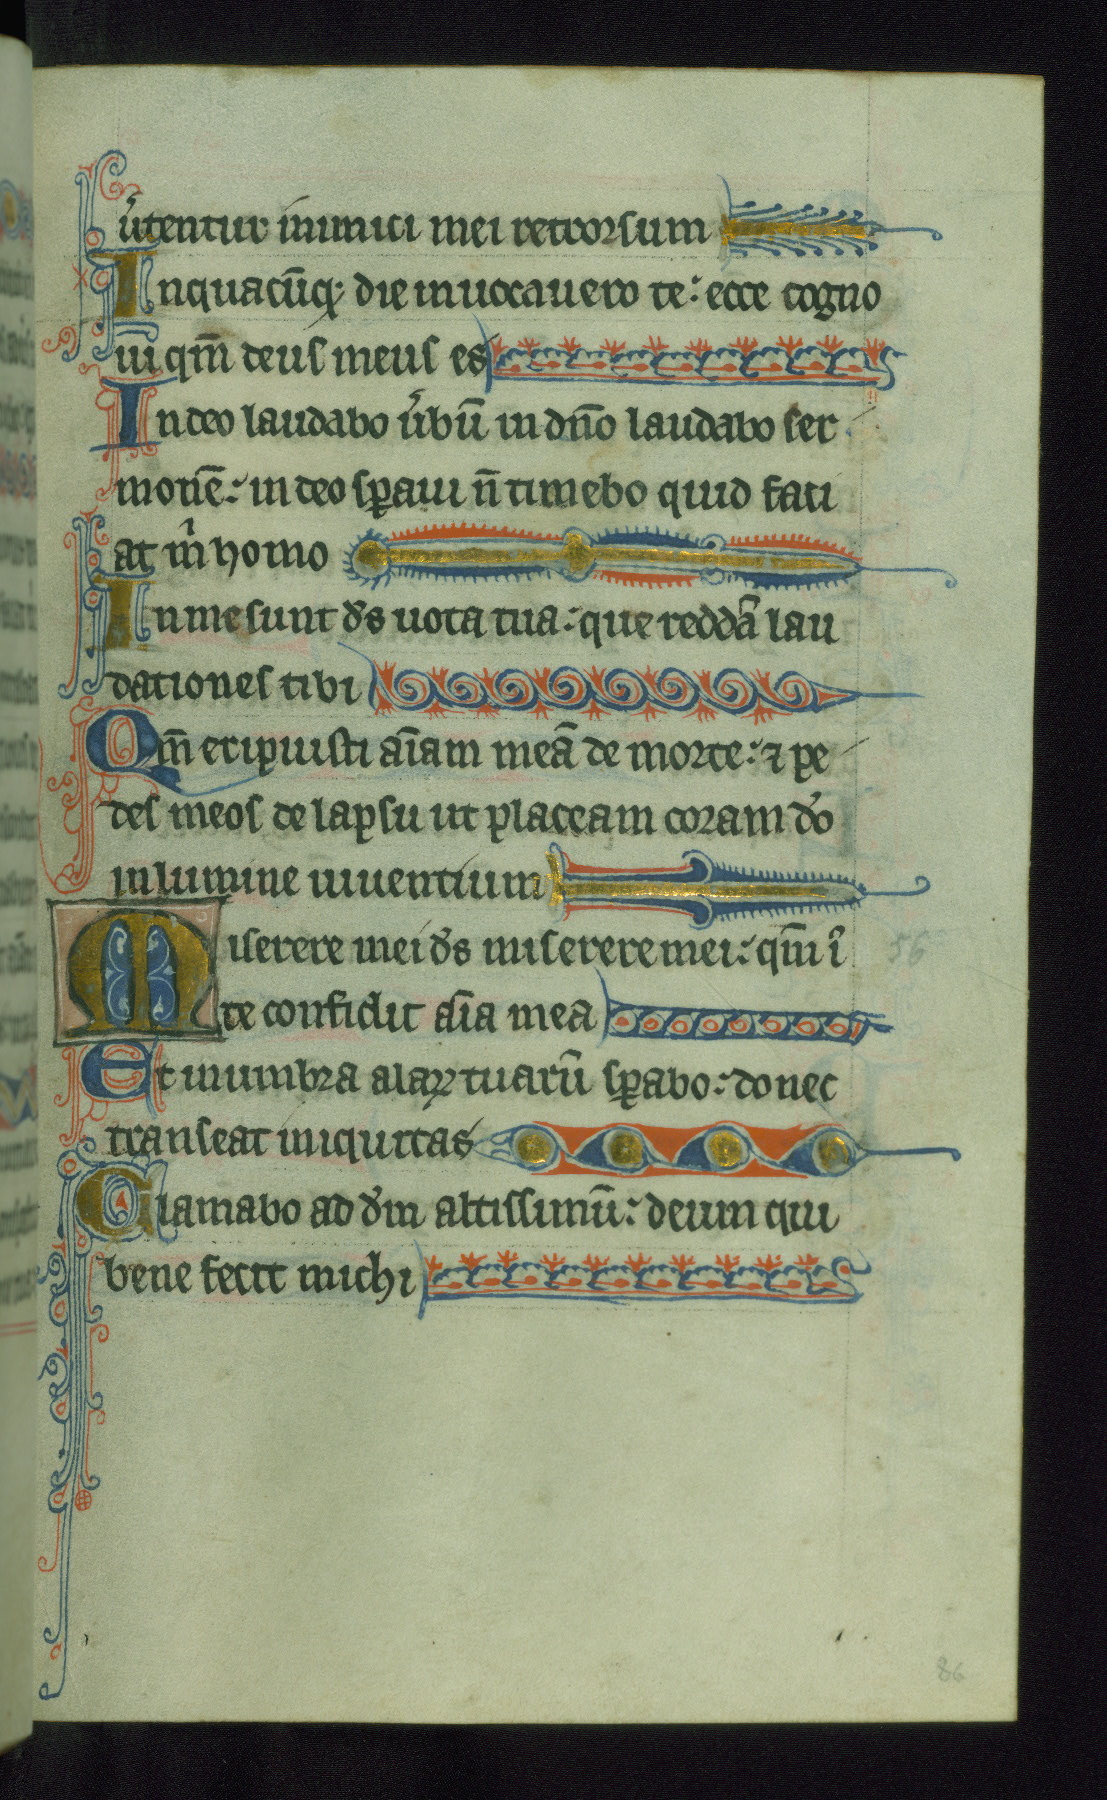 ũtentur inimici mei retrorsum
Inquacũq; die inuocauero te: ecce cogno
ui qm̃ deus meus es
In deo laudabo ũbũ in dño laudabo ser
monẽ: in deo sꝑaui ñ timebo quid faci
at m̃ homo
In me sunt ds̃ uota tua: que reddã lau
dationes tibi
Qm̃ eripuisti aĩam meã de morte: ⁊ pe
des meos de lapsu ut placeam coram dõ
in lumine uiuentium
Miserere mei ds̃ miserere mei: qm̃ ĩ
te confidit aĩa mea
Et in umbra alaꝝ tuarũ sꝑabo: donec
transeat iniquitas
Clamabo ad dm̃ altissimũ: deum qui
bene fecit michi
56
86